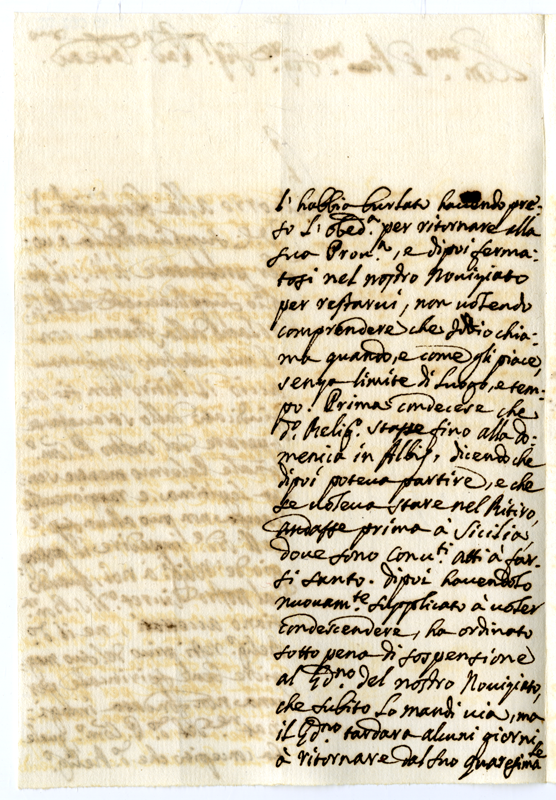 l'habbia burlato havendo pre-
so l'obed.a per ritornare alla
sua Prou.a, e dipoi ferma-
tosi nel nostro Nouiziato
per restarui, non uolendo
comprendere che Iddio chia-
ma quando, e come gli piace,
senza limite di Luogo, e tem-
po. Prima condecese che
d.o Relig.o stasse fino alla do-
menica in Albis, dicendo che
dipoi poteua partire, e che
se uoleua stare nel Ritiro,
andasse prima à Sicilia,
doue sono Conu.ti atti à far-
si santo. Dipoi hauendolo
nuouam.te supplicato à uoler
condescendere, ha ordinato
sotto pena di sospensione
al G͂d.no del nostro Nouiziato,
che subito Lo mandi uia, ma
il G͂d.no tardara alcuni giorni
à ritornare dal suo quaresimale